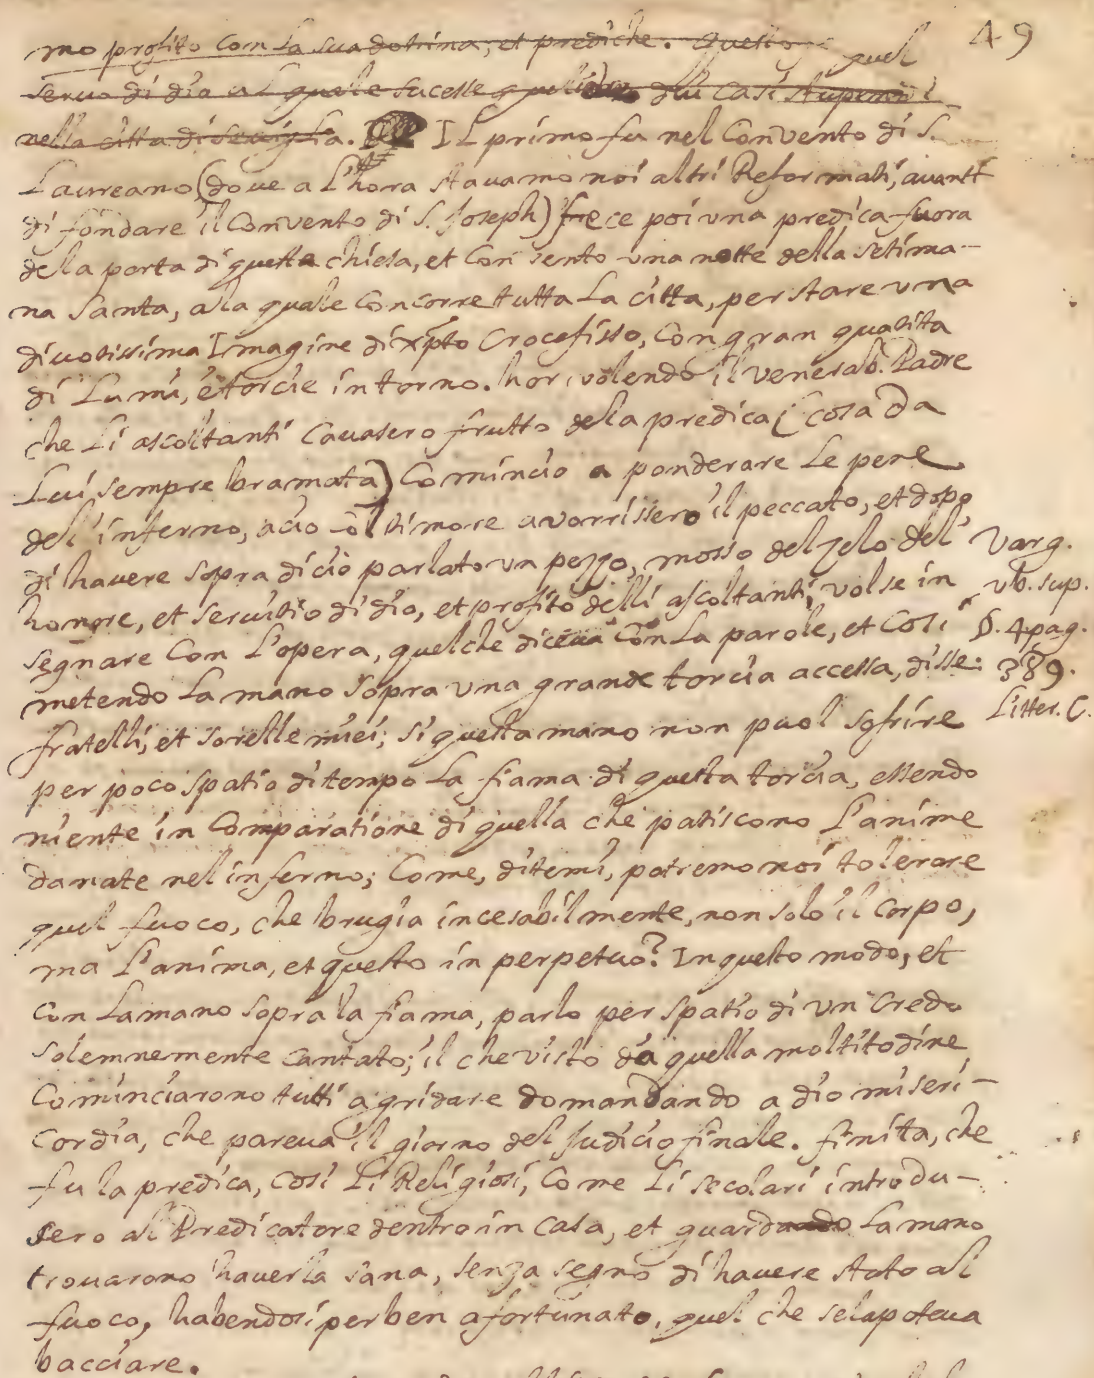 49
mo profito con la sua dotrina, et prediche. Questo quel
servo di dio al quale sucesse quelli dui casi stupendi
nella citta di Seviglia. IL primo fu nel Convento di S.
Laureano (dove a l'hora stavamo noi altri Reformati, avanti
di fondare il Convento di S. Joseph) fece poi una predica fuora
dela porta di questa chiesa, et Convento una notte della setima-
na Santa, ala quale concorre tutta La citta, per stare una
divotissima Imagine di xpto Crocefisso, con gran quatita
di Lumi, e torcie intorno. hor volendo il venerab. Padre
che Li ascoltanti Cavasero frutto dela predica (cosa da
Lui sempre bramata) Cominciò a ponderare Le pene
del'inferno, aciò col timore avorrissero il peccato, et dopo
di havere sopra di ciò parlato un pezzo, mosso del zelo del'
honore, et servitio di dio, et profito delli ascoltanti, volse in
segnare Con L'opera, quelche diceva con La parole, et Cosi
metendo La mano sopra una grande torcia accessa, disse:
Varg.
ub. sup.
§. 4 pag.
389.
Litter. C.
fratelli, et sorelle miei; si questa mano non puol sofrire
per poco spatio di tempo La fiama di questa torcia, essendo
niente in Comparatione di quella che patiscono L'anime
danate nel inferno; Come, ditemi, potremo noi tolerare
quel fuoco, che brugia incesabilmente, non solo il corpo,
ma L'anima, et questo in perpetuo? In questo modo, et
con La mano sopra la fiama, parlo per spatio di un Credo
solemnemente cantato; il che visto da quella moltitodine,
Cominciarono tutti a gridare domandando a dio miseri-
cordia, che pareva il giorno del Judicio finale. finita, che
fu la predica, Cosi Li Religiosi, Come Li secolari introdu-
sero al Predicatore dentro in casa, et guardando La mano
trovarono haverla sana, senza segno di havere stato al
fuoco, habendosi per ben afortunato, quel che se la poteva
bacciare.